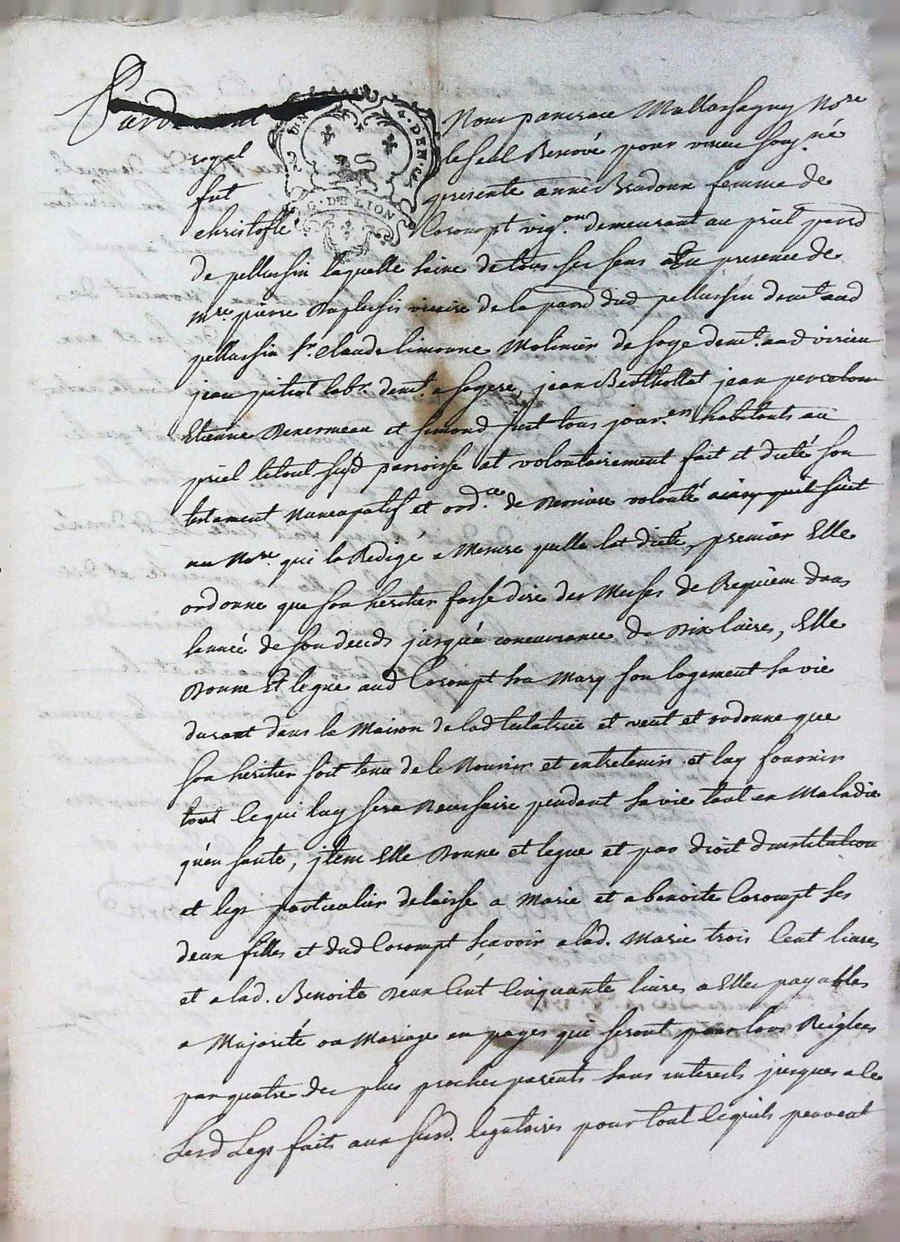 Pardevant Nous pancrace Mallassagny No.re
royal le seul Renové pour virieu sous.né
fut presente anne Bradoux femme de
christofle Corompt vig.on demeurant au priel parr
de pellussin laquelle saine de tous ses sens En presence de
m.re pierre Duplessis vicaire de la parr dud pellussin dem.t aud
pellussin s.r claude limonne Molinier de soye dem.t aud virieu
jean pitiot lab.r dem.t a jean Berthollat jean
Etienne et simond just tous jour.ers habitants au
priel le tout susd parroisse at volontairement fait et dicté son
testament Nuncupatif et ord.ce de Derniere volonté ainsy quil suit
au No.re qui la Redigé a Mesure quelle lat dicté, premier Elle
ordonne que son heritier fasse dire des Messes de Requiem dans
lannée de son deceds jusqua concurrance de Dix livres, Elle
Donne Et legue aud Corompt son Mary son logement sa vie
durant dans la Maison de lad testatrice et veut et ordonne que
son heritier soit tenu de le Nourrir et entretenir et luy fournir
tout ce qui luy sera Neccessaire pendant sa vie tant en Maladie
quen santé, jtem Elle Donne et legue et par droit dinstitution
et legs particulier delaisse a Marie et a benoite Corompt ses
deux filles et dud Corompt sçavoir a lad. Marie trois Cent livres
et a lad. Benoite Deux Cent Cinquante livres a Elles payables
a Majorité ou Mariage en payes qui seront pour lors Reiglées
par quatre de plus proche parents sans interests jusques a ce
Lesd Legs faits aux susd. legataires pour tout ce quils peuvent
G. DE LION